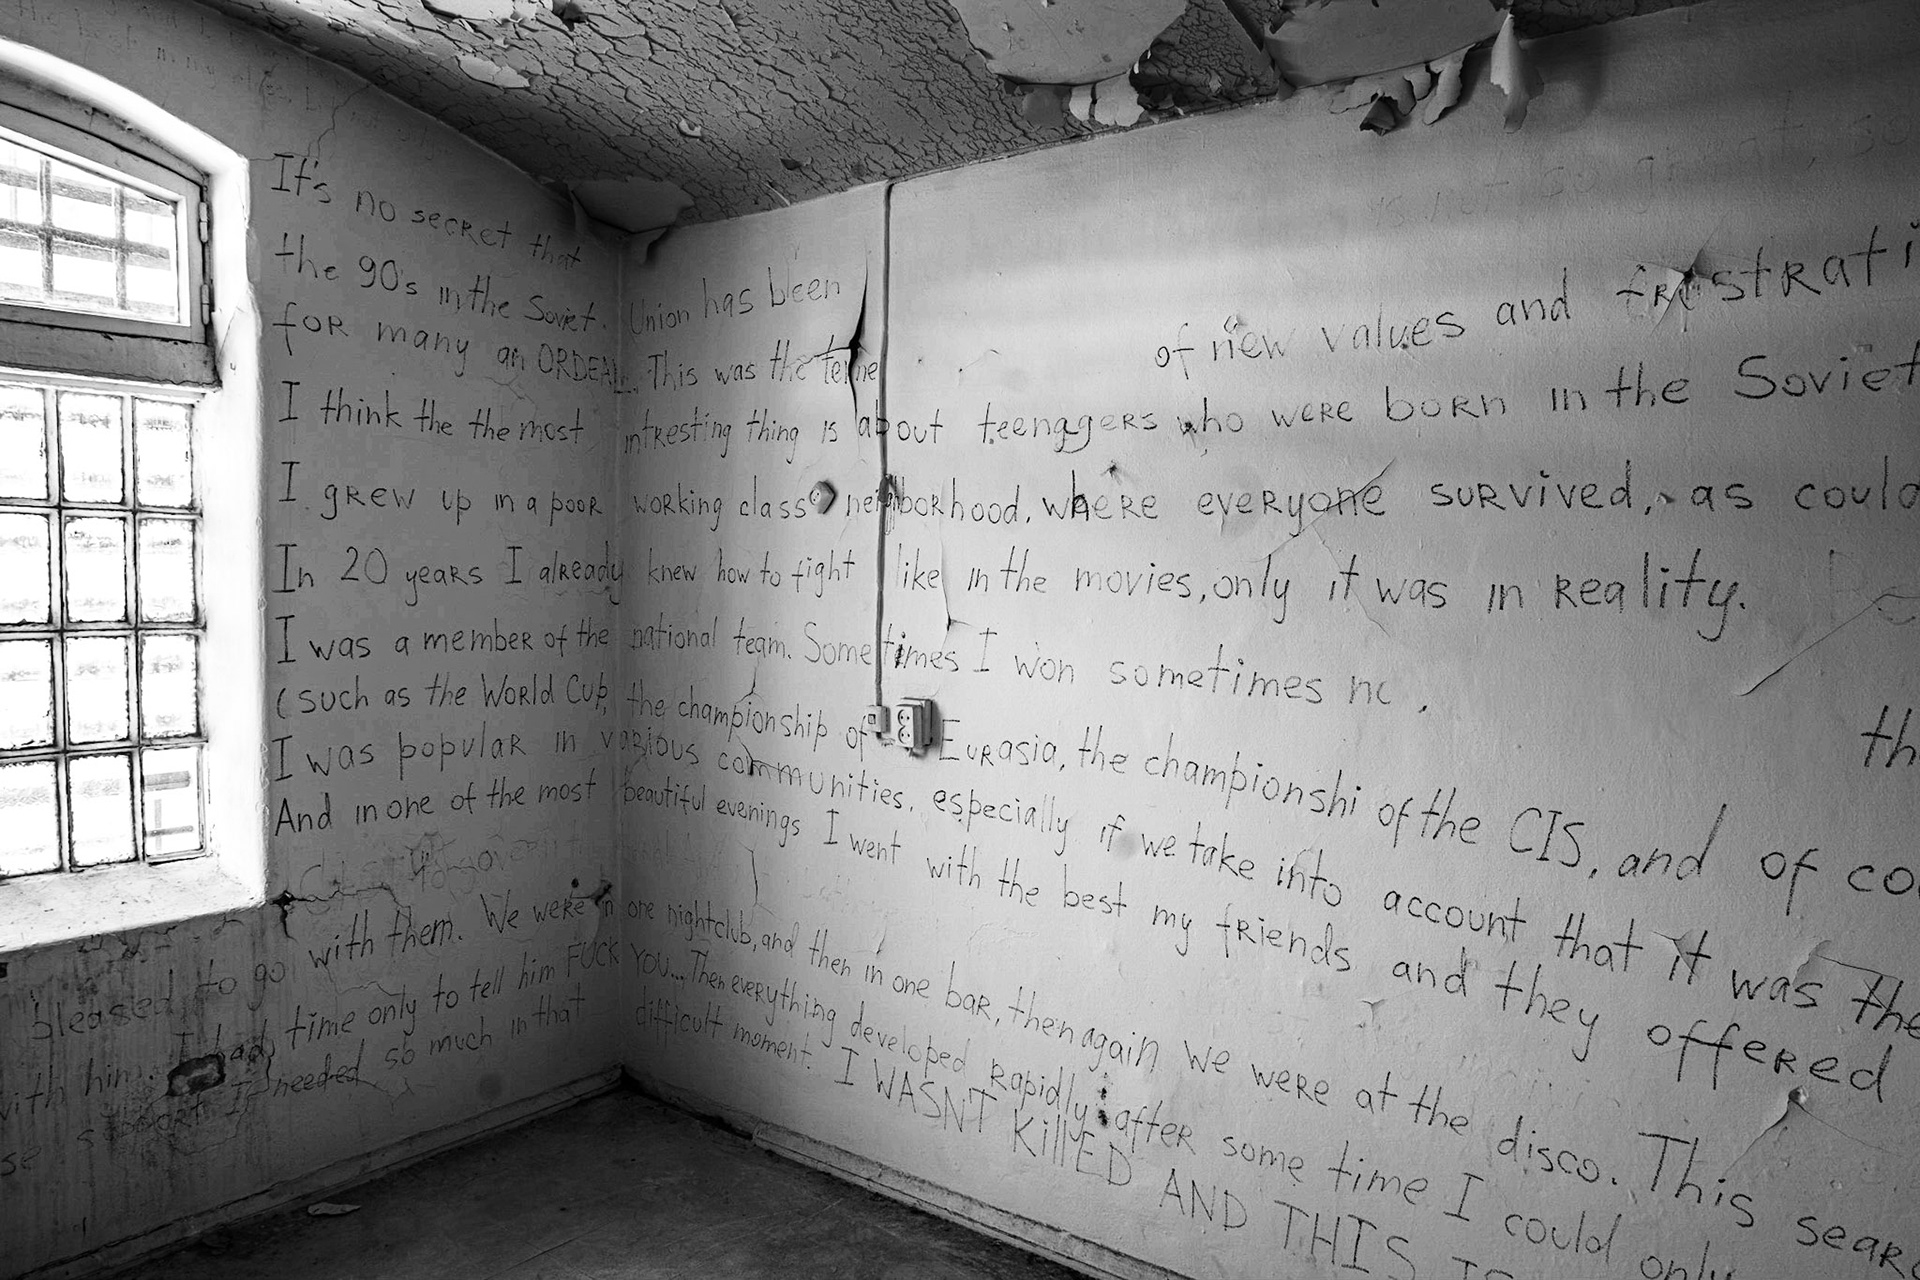 It's no secret that
the 90's in the Soviet. Union has been of new values and frustrati
for many an ORDEAL. This was the
I think the the most intresting thing is about teenagers who were born in the Soviet
I grew up in a poor working class neighborhood, where everyone survived, as could
In 20 years I already knew how to fight like in the movies, only it was in reality.
I was a member of the national team. Sometimes I won sometimes
(such as the World Cup, the championship of Eurasia, the championshi of the CIS, and of
I was popular in various communities, especially if we take into account that it was the
And in one of the most beautiful evenings I went with the best my friends and they offered
pleased to go with them. We were in one nightclub, and then in one bar, then again we were at the disco. This
with him. I had time only to tell him FUCK YOU... Then everything developed rapidly after some time I could only
support I needed so much in that difficult moment. I WASNT KillED AND THIS